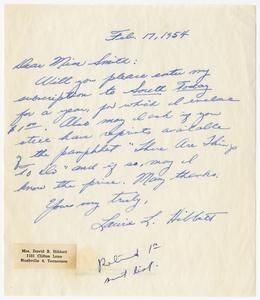 Feb. 17, 1954
Dear Miss Smith:
Will you please enter my
subscription to South Today
for a year, for which I enclose
$1.00. Also may I ask if you
still have reprints available
of the pamphlet "There Are Things
to Do" and if so, may I
know the price. Many thanks.
Yours truly,
Louise L. Hibbett
Mrs. David B. Hibbett
2101 Clifton Lane
Nashville 4, Tennessee